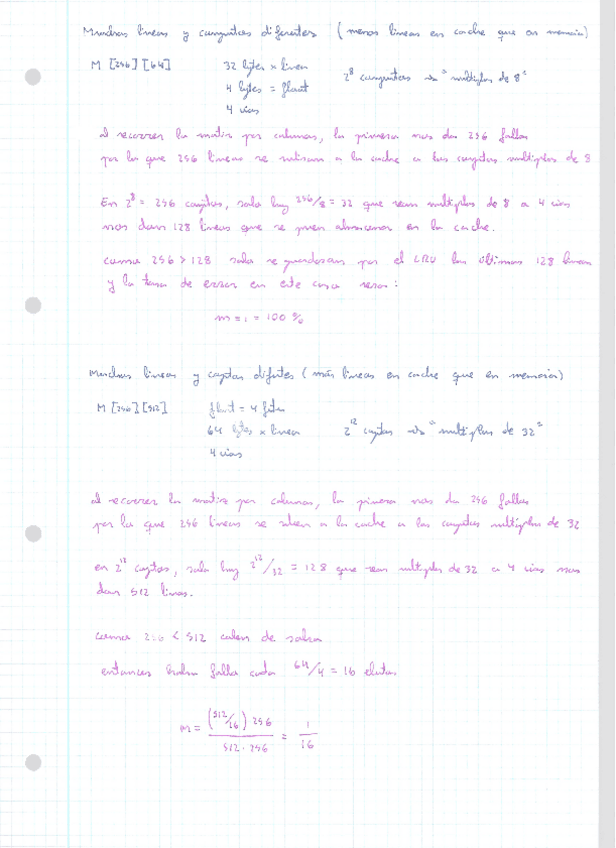 Muchas lineas y conjuntos diferentes (menos lineas en cache que en memoria)
M [256] [64] 32 bytes x linea
4 bytes = float 2^8 conjuntos → "multiplos de 8"
4 vias
al recorrer la matriz por columnas, la primera nos da 256 fallos
por lo que 256 lineas se a la cache a los conjuntos multiplos de 8
En 2^8 = 256 conjtos, solo hay 256/8 = 32 que sean multiplos de 8 a 4 vias
nos dan 128 lineas que se pueden almacenar en la cache.
como 256 > 128 solo se guardaran por el LRU las últimas 128 lineas
y la tasa de error en este caso sera:
m = 1 = 100 %
Muchas lineas y conjtos difntes (más lineas en cache que en memoria)
M [256] [512] float = 4 bytes
64 bytes x linea 2^12 conjtos → "multiplos de 32"
4 vias
al recorrer la matriz por columnas, la primera nos da 256 fallos
por lo que 256 lineas se a la cache a los conjuntos multiplos de 32
en 2^12 conjtos, solo hay 2^12/32 = 128 que sean multiplos de 32 a 4 vias nos
dan 512 lineas.
como 256 < 512 caben de sobra
entonces habra fallo cada 64/4 = 16 elntos
m = (512/16) 256 / 512 · 256 = 1/16